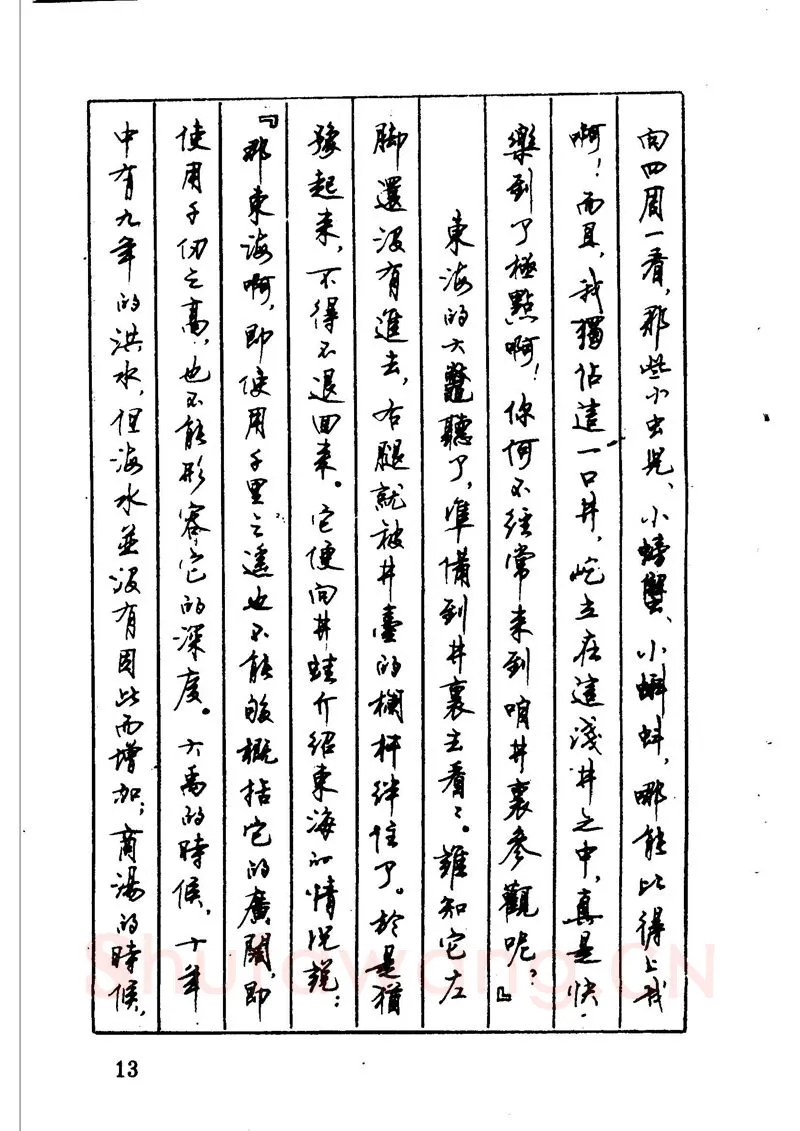 向四周一看，那些小虫儿、小螃蟹、小蝌蚪，哪能比得上我
啊！而且，我獨佔這一口井，屹立在這淺井之中，真是快
樂到了極點啊！你何不經常来到咱井裏参觀呢？』
東海的大鼈聽了，準備到井裏去看看。誰知它左
脚還没有進去，右腿就被井臺的欄杆絆住了。於是猶
豫起来，不得不退回来。它便向井蛙介绍東海的情况説：
『那東海啊，即使用千里之遙也不能够概括它的廣闊，即
使用千仞之高，也不能形容它的深度。大禹的時候，十年
中有九年的洪水，但海水並没有因此而增加；商湯的時候，
13
Shufawang.CN